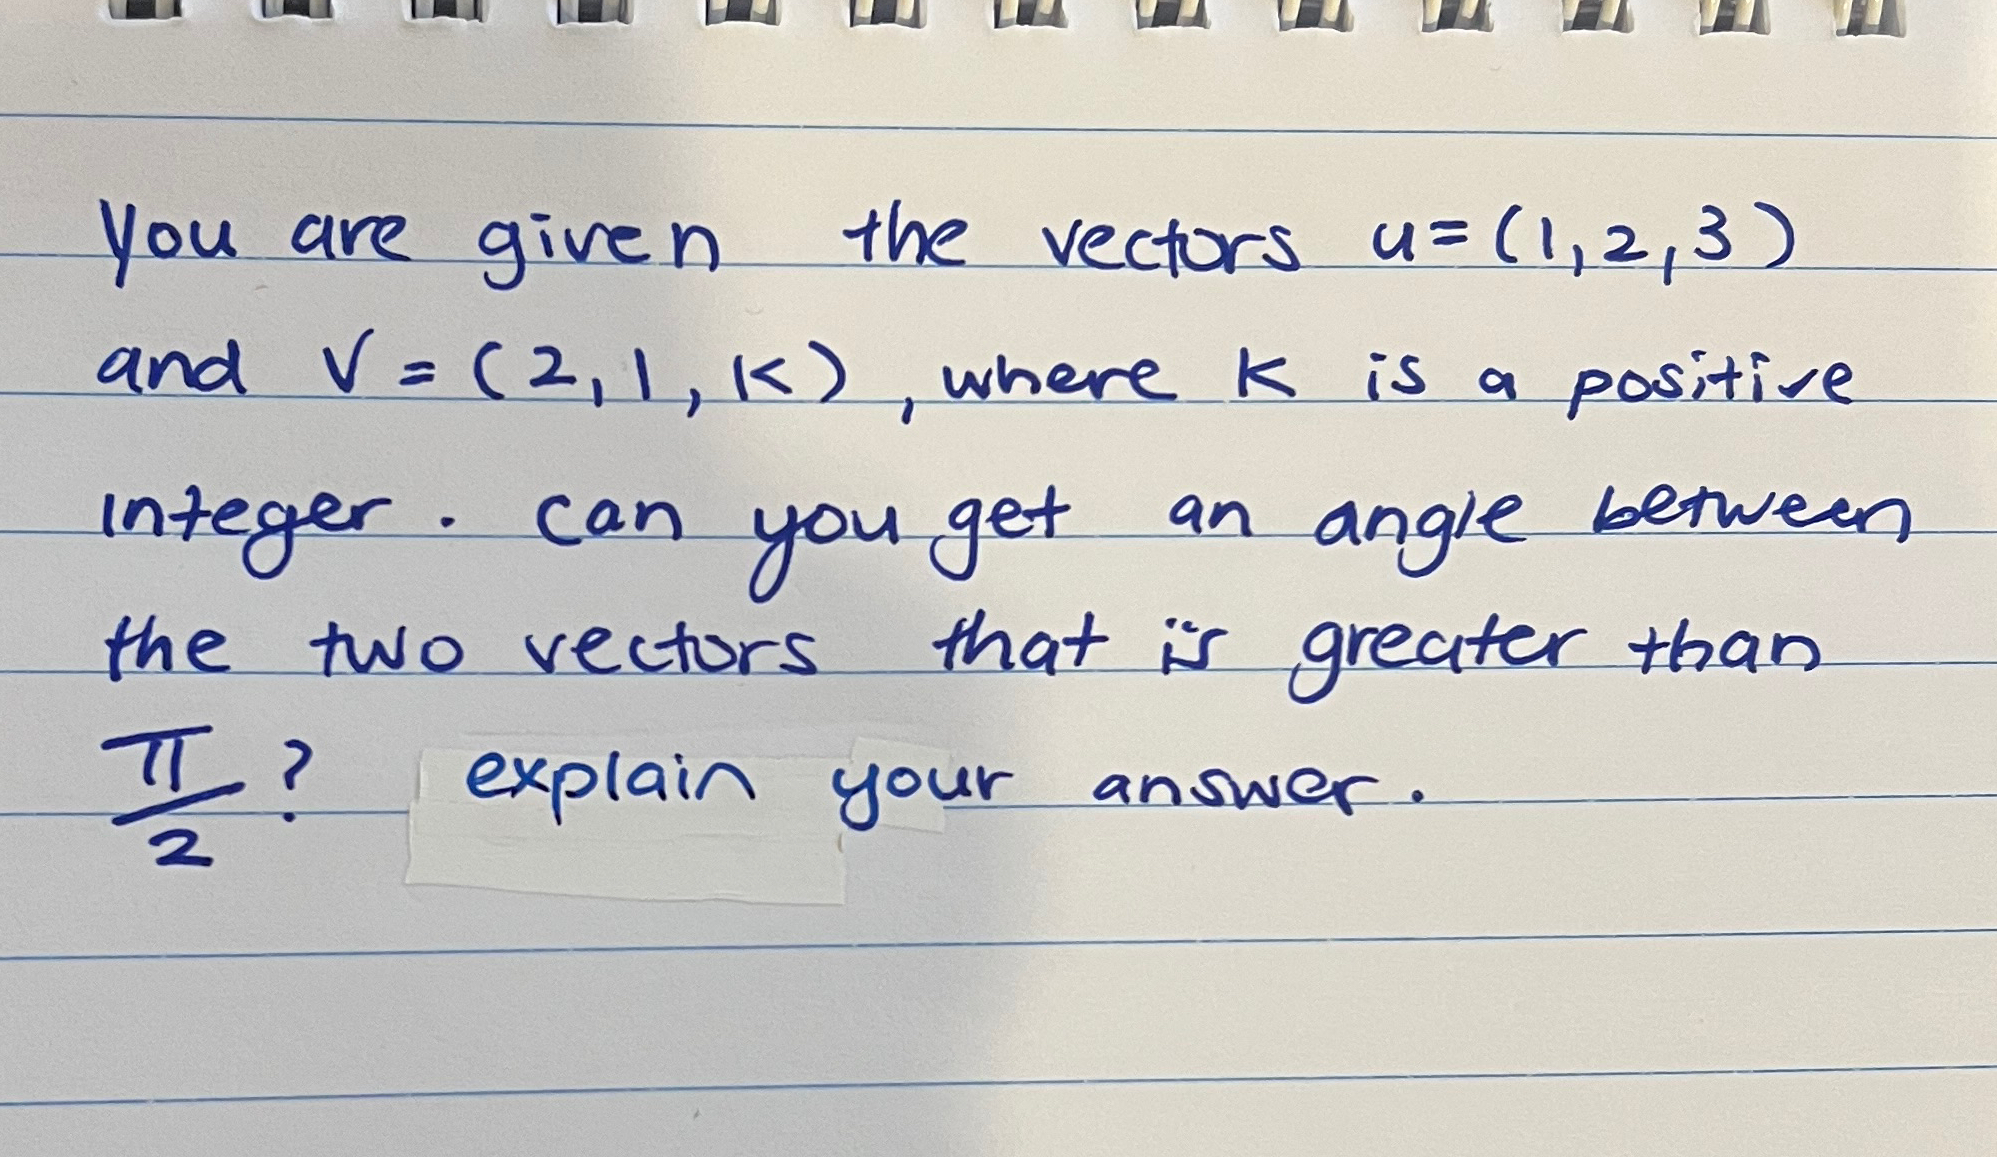 You are given the vectors u=(1,2,3)
and V=(2,1,K), where K is a positive
integer. can you get an angle between
the two vectors that is greater than
π/2? explain your answer.